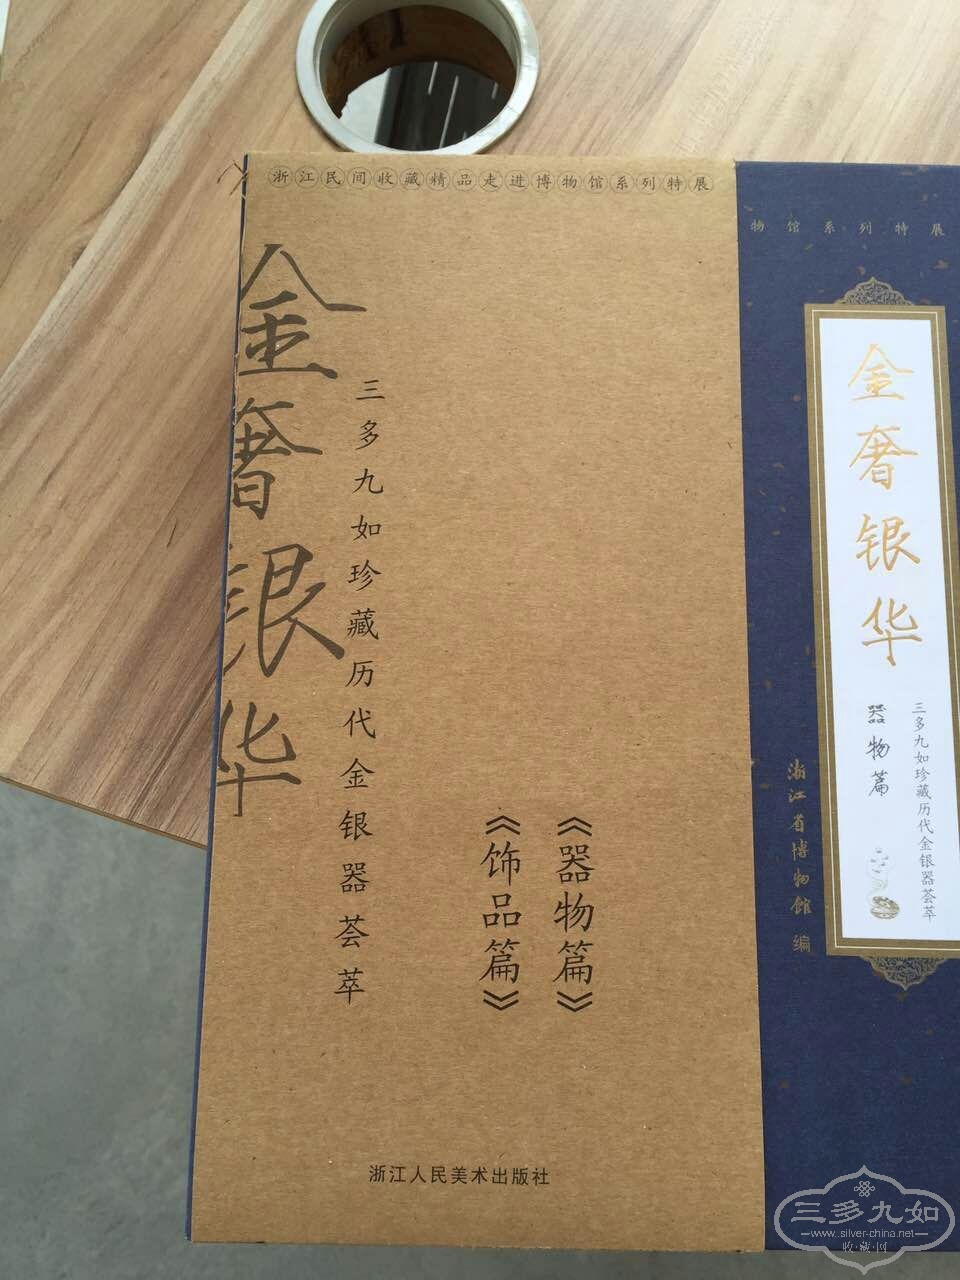 浙江民间收藏精品走进博物馆系列特展
金奢银华
三多九如珍藏历代金银器荟萃
《器物篇》
《饰品篇》
浙江人民美术出版社
物馆系列特展
金奢银华
三多九如珍藏历代金银器荟萃
器物篇
浙江省博物馆 编
三多九如
www.silver-china.net
收·藏·网